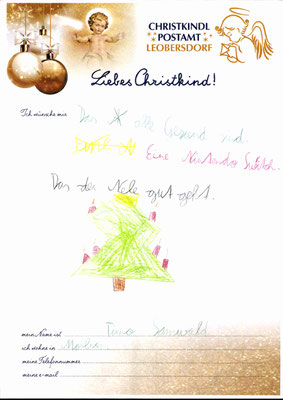 CHRISTKINDL
POSTAMT
LEOBERSDORF
Liebes Christkind!
Ich wünsche mir Das alle Gesund sind.
Eine Nintendo Switch.
Das der Nele gut geht.
mein Name ist
ich wohne in
meine Telefonnummer
meine e-mail